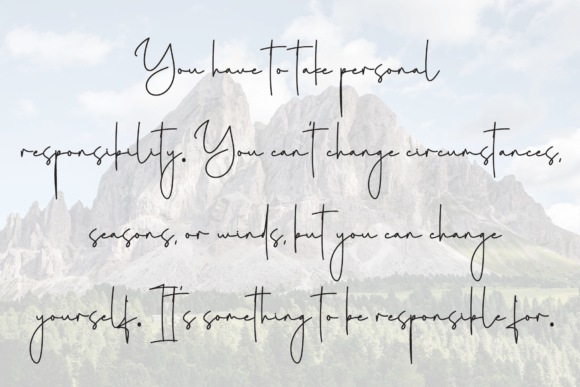 You have to take personal
responsibility. You can't change circumstances,
seasons, or winds, but you can change
yourself. It's something to be responsible for.